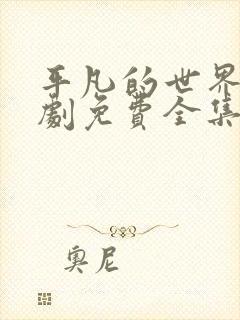 平凡的世界
劇免費全集
奥尼